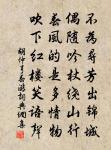 不為尋芳出錦城
偶隨吟杖繞山行
春風的是多情物
吹下紅樓笑語聲
胡仲弓春游詞典網